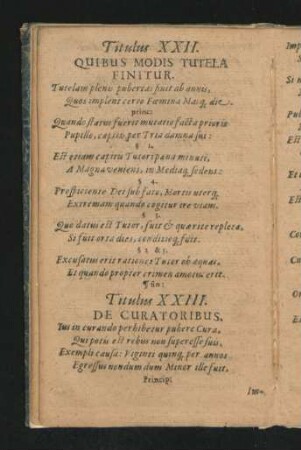 Titulus XXII.
QUIBUS MODIS TUTELA
FINITUR.
Tutelam plenis pubertas fuit ab annis,
Quos implent certo Fœmina Masq, die.
princ:
Quando status fuerit mutatio facta prioris
Pupillo, capitis per Tria damna sui:
§ 1.
Est etiam capitis Tutori pœna minuti,
A Magna veniens, in Mediaq, sedens:
§ 4.
Prospiciente Dei sub fata, Mortis uterq,
Extremam quando cogitur ire viam.
§ 3.
Quo datus est Tutor, fuit & quæsite repleta,
Si fuit orta dies, conditioq, fuit.
§ 2. & 5.
Excusatus erit ratione Tutor ob æquas,
Et quando propter crimen amotus erit.
§ fin:
Titulus XXIII.
DE CURATORIBUS.
Ius in curando perhibetur pubere Cura,
Qui potis est rebus non superesse suis,
Exempli causa: Viginti quinq, per annos
Egressus nondum dum Minor ille fuit.
Princip: